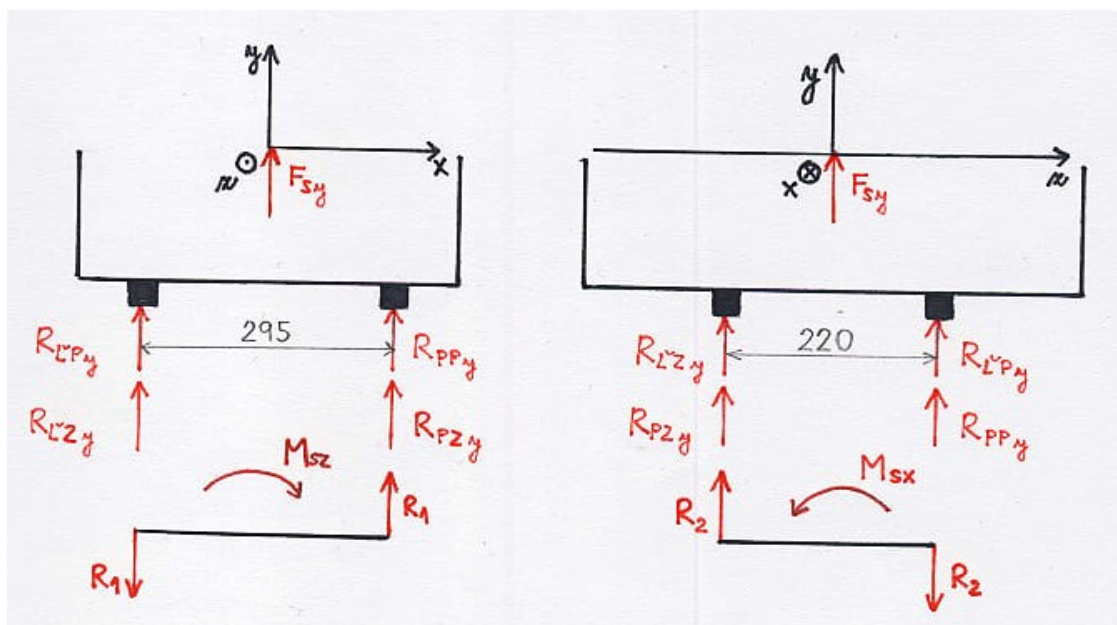 y
x
z
F_sy
295
R_ĽPy
R_PPy
R_ĽZy
R_PZy
M_SZ
R_1
R_1
y
z
x
F_sy
220
R_ĽZy
R_ĽPy
R_PZy
R_PPy
M_SX
R_2
R_2